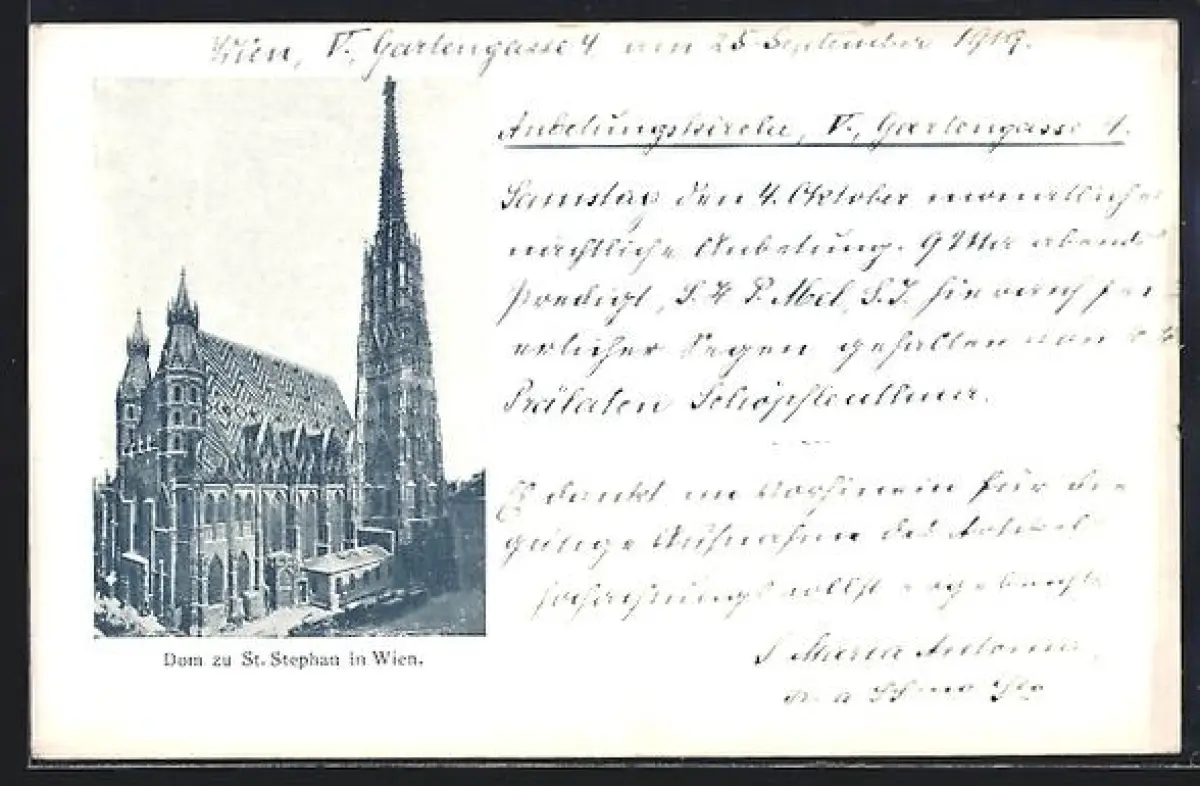 Wien, V, Gartengasse 4 am 25 September 1919.
Anbetungskirche, V., Gartengasse 4.
Samstag den 4. Oktober monatliche
nächtliche Anbetung. 9 Uhr abends
Predigt, S. H P. Abel, S.J. hierauf fei
erlicher Segen gehalten von
Prälaten Schöpfleuthner.
Es dankt im Vorhinein für die
gütige Aufnahme des
hochachtungsvollst ergebenste
S Maria Antonia
Dom zu St. Stephan in Wien.